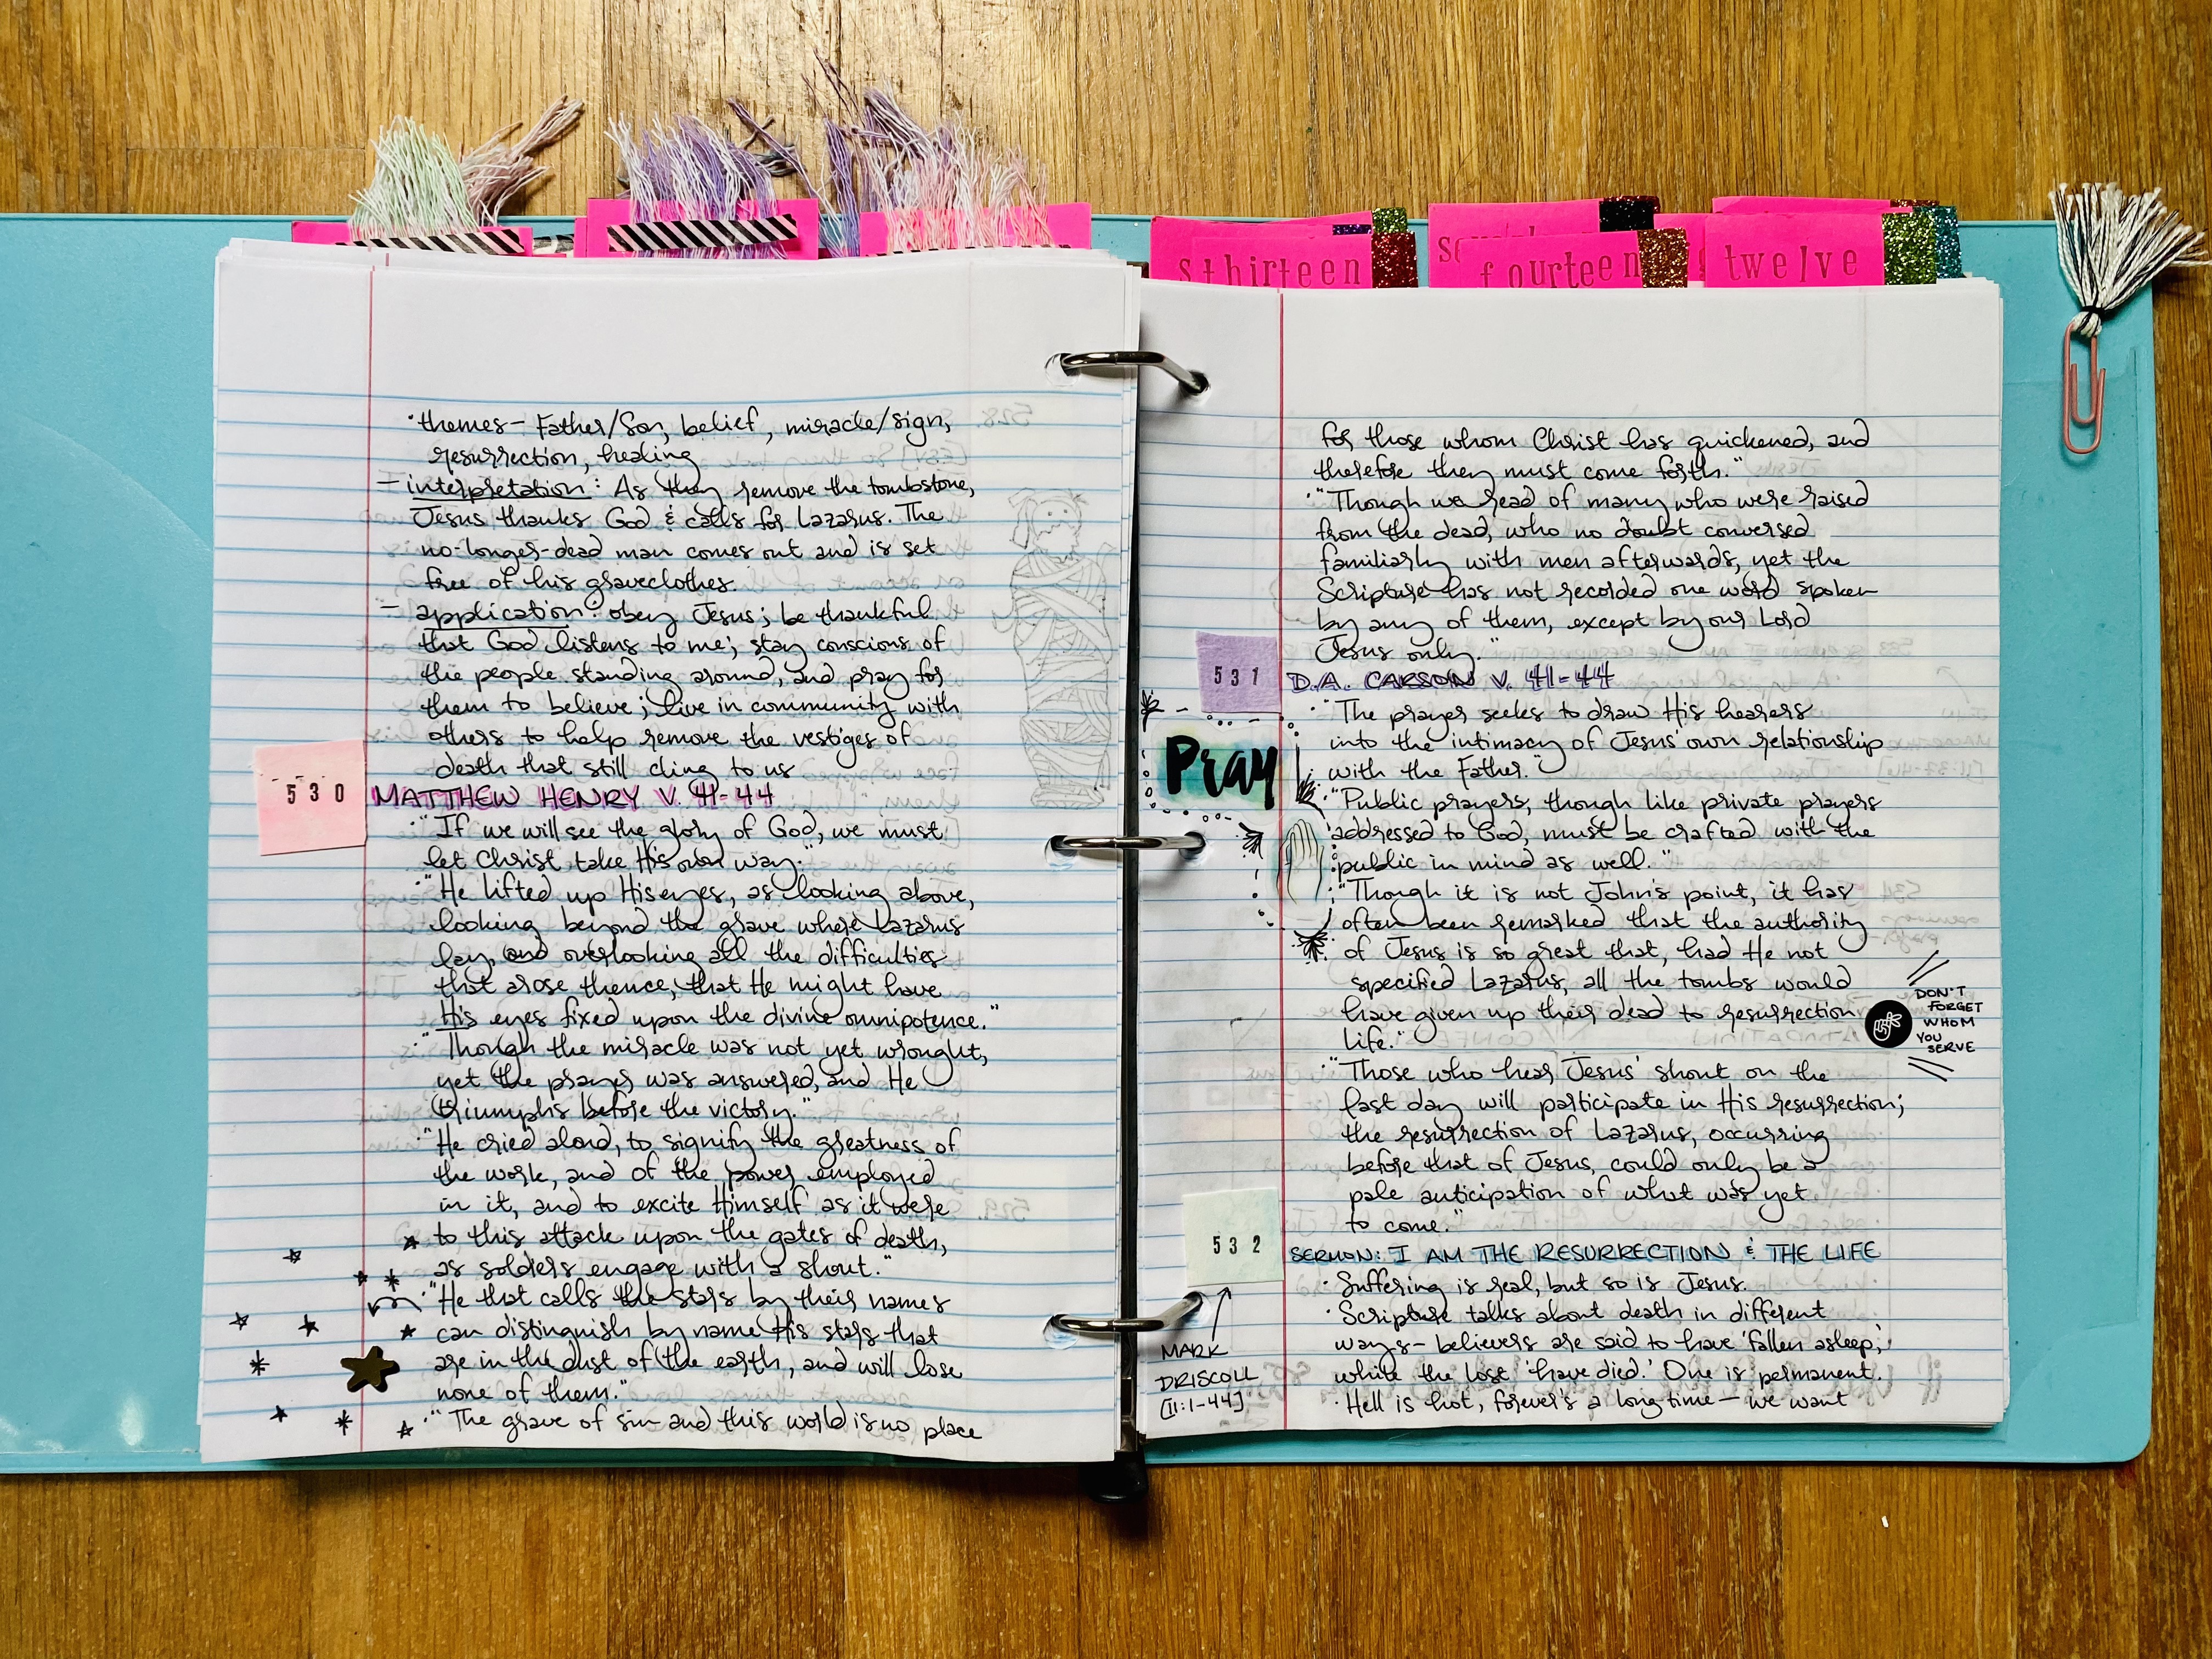 · themes - Father/Son, belief, miracle/sign,
resurrection, healing
- interpretation: As they remove the tombstone,
Jesus thanks God & calls for Lazarus. The
no-longer-dead man comes out and is set
free of his graveclothes.
- application: obey Jesus; be thankful
that God listens to me; stay conscious of
the people standing around, and pray for
them to believe; live in community with
others to help remove the vestiges of
death that still cling to us
530
MATTHEW HENRY V. 41-44
· "If we will see the glory of God, we must
let Christ take His own way."
· "He lifted up His eyes, as looking above,
looking beyond the grave where Lazarus
lay, and overlooking all the difficulties
that arose thence, that He might have
His eyes fixed upon the divine omnipotence."
· "Though the miracle was not yet wrought,
yet the prayer was answered, and He
triumphs before the victory."
· "He cried aloud, to signify the greatness of
the work, and of the power employed
in it, and to excite Himself as it were
to this attack upon the gates of death,
as soldiers engage with a shout."
· "He that calls the stars by their names
can distinguish by name His stars that
are in the dust of the earth, and will lose
none of them."
· "The grave of sin and this world is no place
sthirteen
fourteen
twelve
for those whom Christ has quickened, and
therefore they must come forth."
· "Though we read of many who were raised
from the dead, who no doubt conversed
familiarly with men afterwards, yet the
Scripture has not recorded one word spoken
by any of them, except by our Lord
Jesus only."
531
D.A. CARSON V. 41-44
· "The prayer seeks to draw His hearers
into the intimacy of Jesus' own relationship
with the Father."
Pray
· "Public prayers, though like private prayers
addressed to God, must be crafted with the
public in mind as well."
· "Though it is not John's point, it has
often been remarked that the authority
of Jesus is so great that, had He not
specified Lazarus, all the tombs would
have given up their dead to resurrection
life."
DON'T
FORGET
WHOM
YOU
SERVE
· "Those who hear Jesus' shout on the
last day will participate in His resurrection;
the resurrection of Lazarus, occurring
before that of Jesus, could only be a
pale anticipation of what was yet
to come."
532
SERMON: I AM THE RESURRECTION & THE LIFE
· Suffering is real, but so is Jesus.
· Scripture talks about death in different
ways - believers are said to have 'fallen asleep,'
while the lost 'have died.' One is permanent.
· Hell is hot, forever's a long time - we want
MARK
DRISCOLL
[11:1-44]